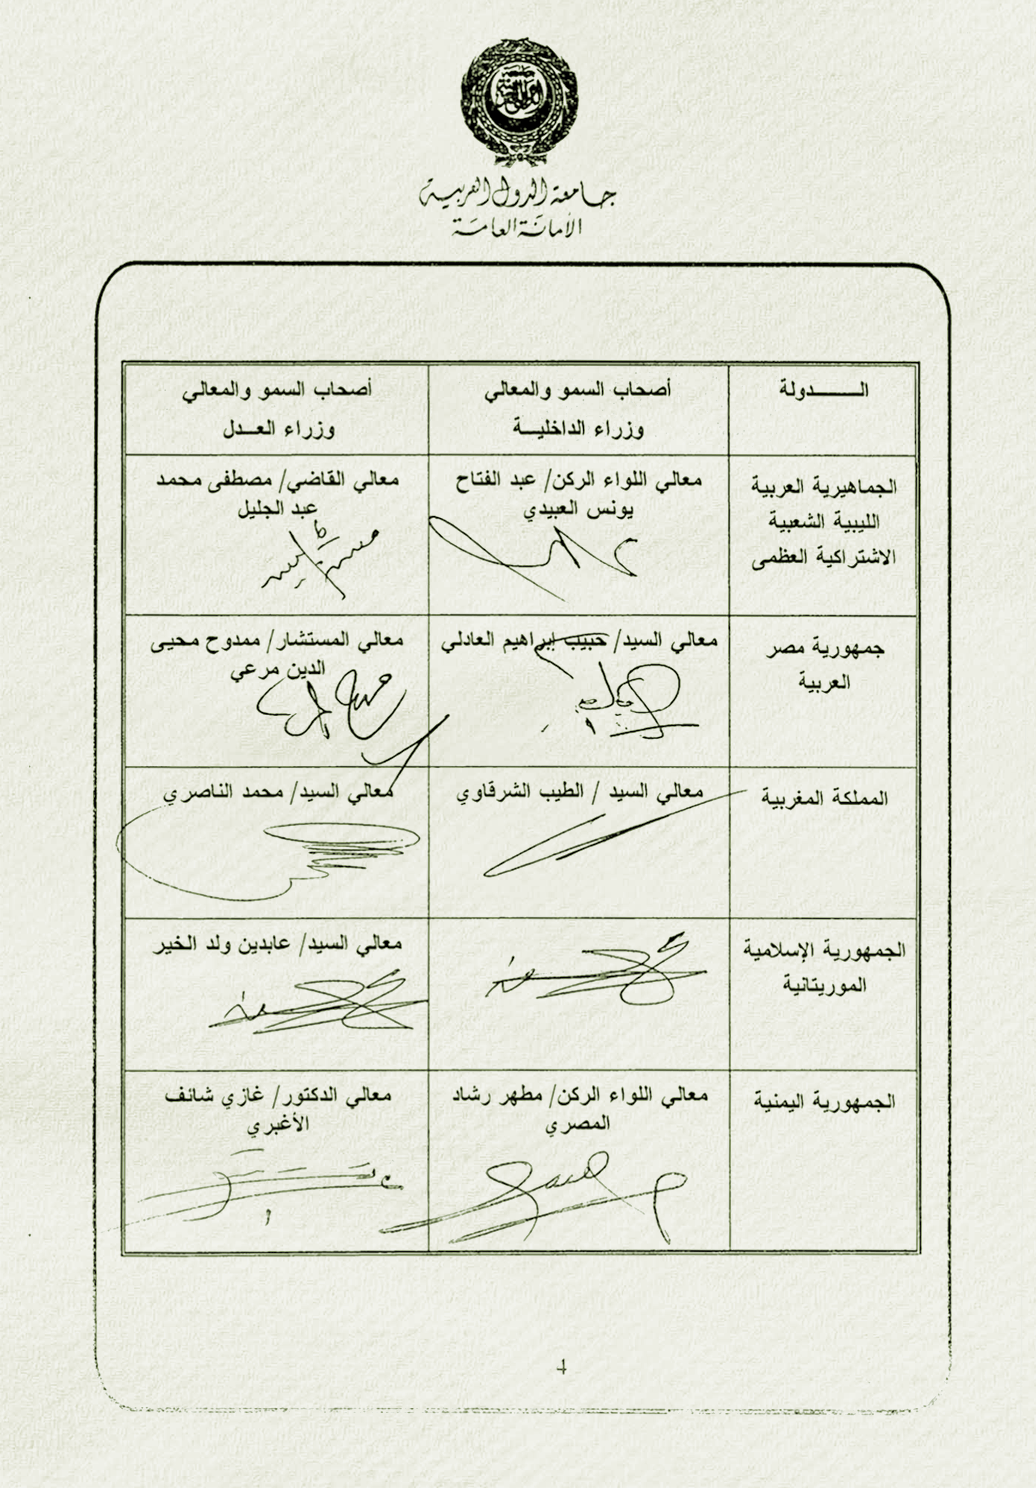 جامعة الدول العربية
الأمانة العامة
الـــــدولة
أصحاب السمو والمعالي
وزراء الداخليـــة
أصحاب السمو والمعالي
وزراء العــدل
الجماهيرية العربية
الليبية الشعبية
الاشتراكية العظمى
معالي اللواء الركن/ عبد الفتاح
يونس العبيدي
معالي القاضي/ مصطفى محمد
عبد الجليل
جمهورية مصر
العربية
معالي السيد/ حبيب ابراهيم العادلي
معالي المستشار/ ممدوح محيى
الدين مرعي
المملكة المغربية
معالي السيد / الطيب الشرقاوي
معالي السيد/ محمد الناصري
الجمهورية الإسلامية
الموريتانية
معالي السيد/ عابدين ولد الخير
الجمهورية اليمنية
معالي اللواء الركن/ مطهر رشاد
المصري
معالي الدكتور/ غازي شائف
الأغبري